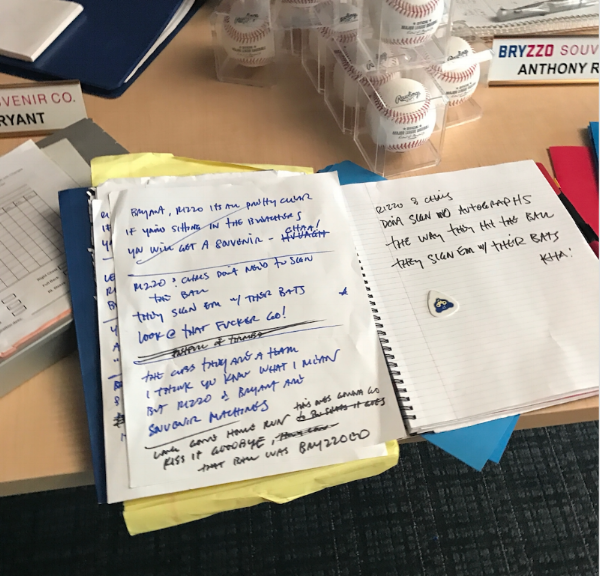 Rawlings
Rawlings
Rawlings
BRYZZO SOUV
ANTHONY R
UVENIR CO.
RYANT
BRYANT, RIZZO ITS ALL PRETTY CLEAR
IF YOUR SITTING IN THE BLEACHERS
YOU WILL GET A SOUVENIR -
RIZZO & CHRIS DON'T NEED TO SIGN
THE BALL
THEY SIGN EM W/ THEIR BATS
LOOK @ THAT FUCKER GO!
THE CUBS THEY ARE A TEAM
I THINK YOU KNOW WHAT I MEAN
BUT RIZZO & BRYANT ARE
SOUVENIR MACHINES
LONG GONE HOME RUN THIS ONES GONNA GO
KISS IT GOODBYE,
THAT BALL WAS BRYZZOED
RIZZO & CHRIS
DON'T SIGN NO AUTOGRAPHS
THE WAY THEY HIT THE BALL
THEY SIGN EM W/ THEIR BATS
KHA!